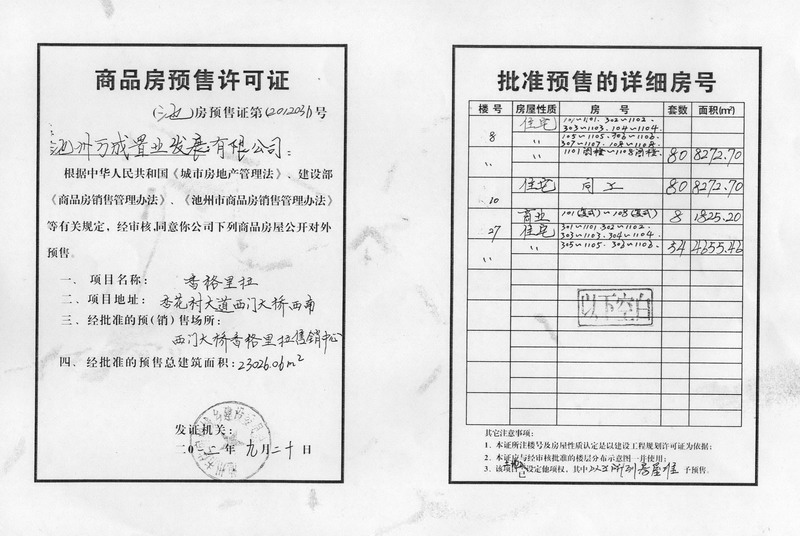 商品房预售许可证
(池)房预售证第(2012031)号
池州万成置业发展有限公司：
根据中华人民共和国《城市房地产管理法》、建设部
《商品房销售管理办法》、《池州市商品房销售管理办法》
等有关规定，经审核,同意你公司下列商品房屋公开对外
预售。
一、项目名称：香格里拉
二、项目地址：杏花村大道西门大桥西南
三、经批准的预(销)售场所：
西门大桥香格里拉售销中心
四、经批准的预售总建筑面积：23026.06m²
发证机关：
二0一二年九月二十日
批准预售的详细房号
楼号 房屋性质 房号 套数 面积(m²)
8 住宅 101～1101. 302～1102.
303～1103. 104～1104.
105～1105. 306～1106.
307～1107. 108～1108.
〃 〃 1101阁楼～1108阁楼. 80 8272.70
10 住宅 同上 80 8272.70
商业 101(复式)～108(复式) 8 1825.20
27 住宅 301～1101. 302～1102.
303～1103. 304～1104.
〃 〃 305～1105. 306～1106. 54 4655.46
以下空白
其它注意事项：
1. 本证所注楼号及房屋性质认定是以建设工程规划许可证为依据；
2. 本证房与经审核批准的楼层分布示意图一并使用；
3. 该项目 已设定他项权，其中以上所列房屋准予预售.